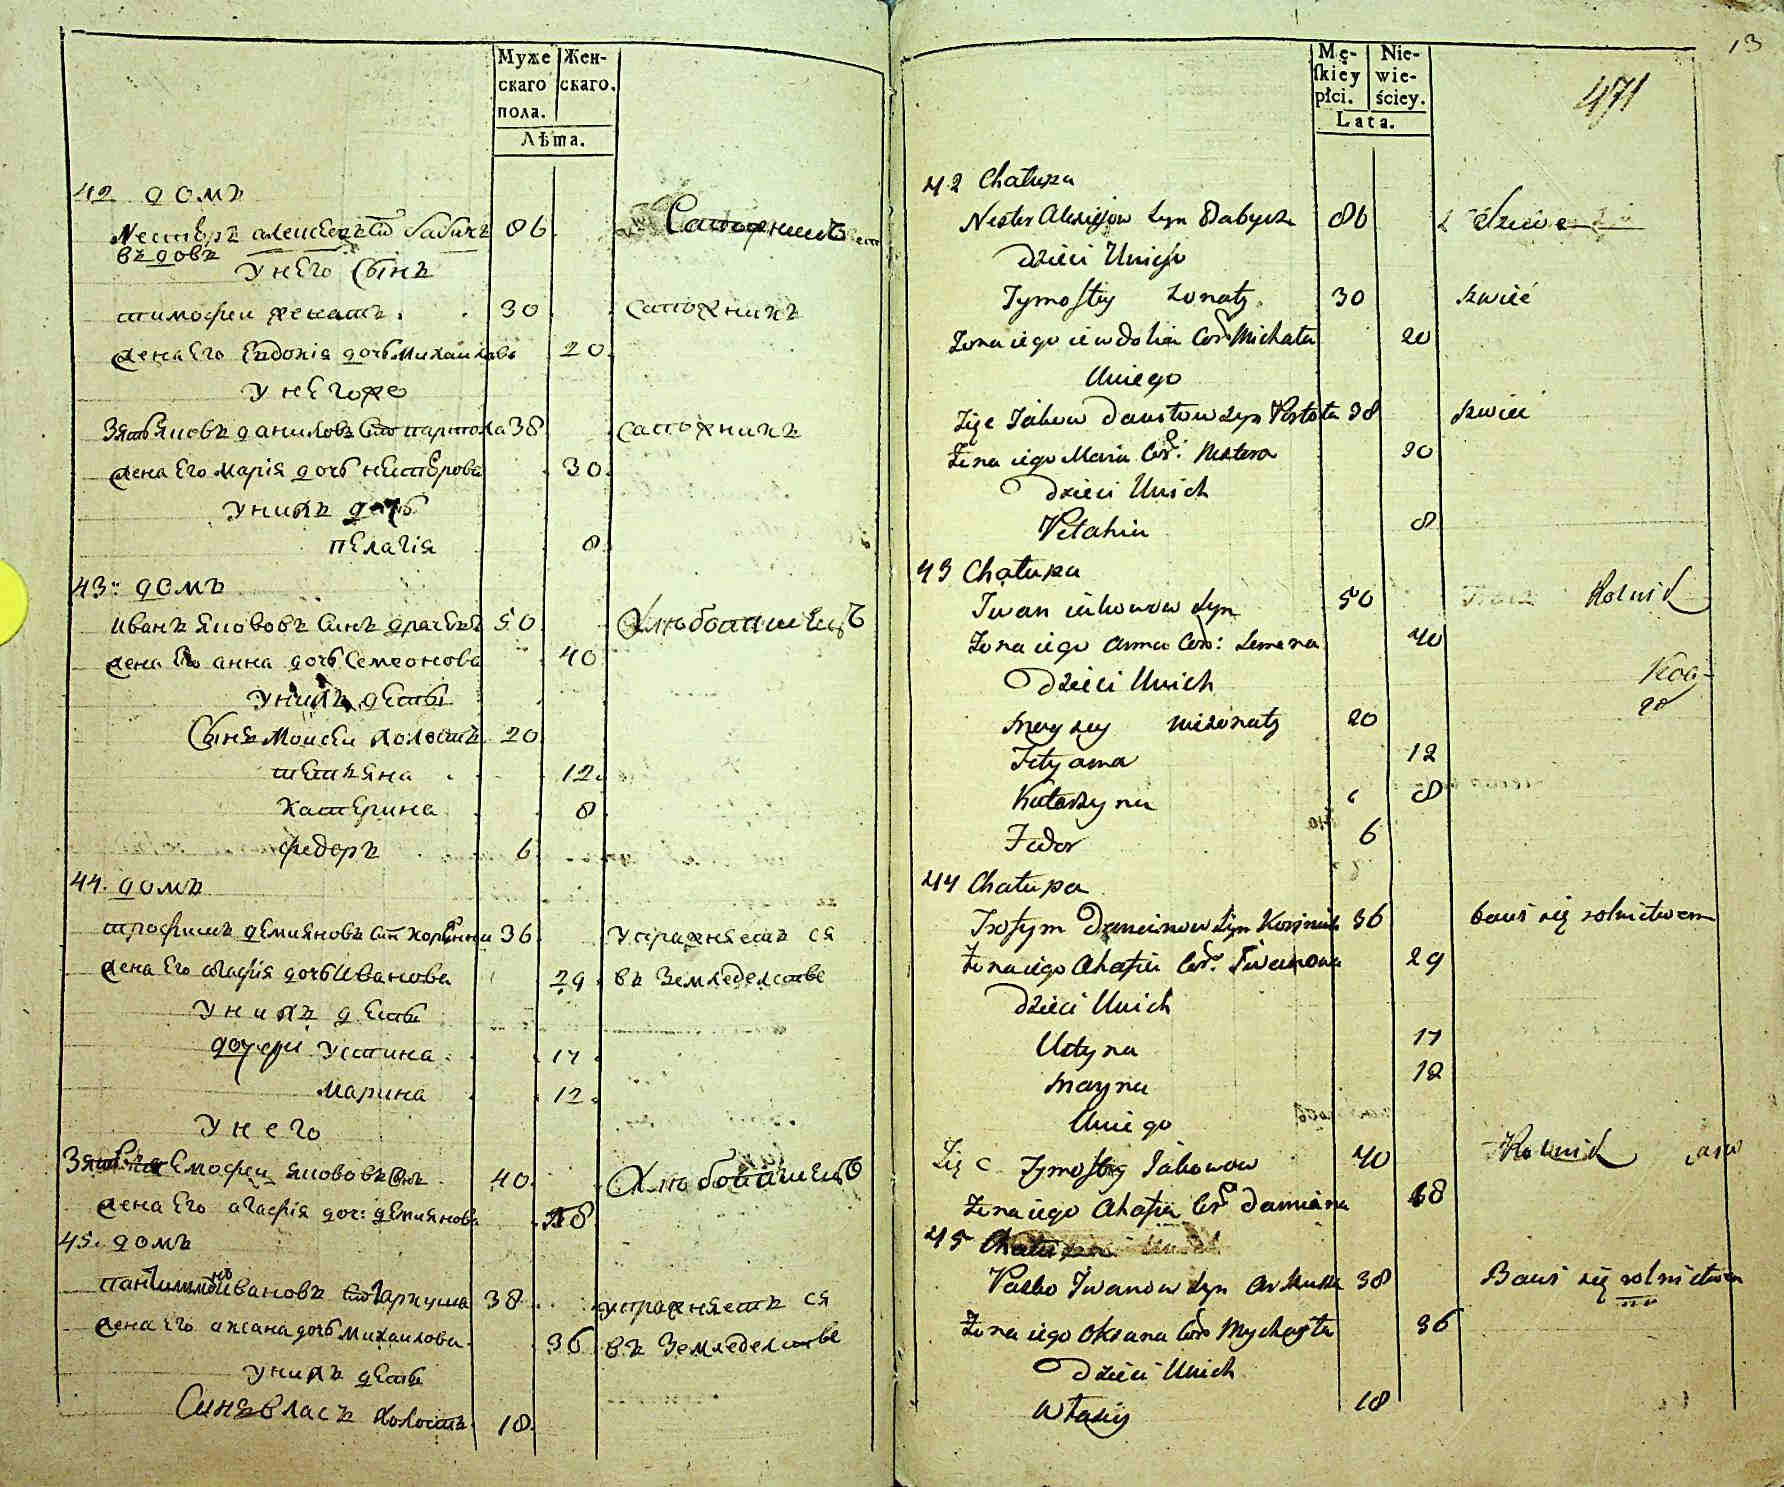 Муже
скаго
пола.
Жен-
скаго.
Лѣта.
42 домъ
Несторъ алексеевъ сынъ бабичъ 86
вдовъ
Сапожникъ
у него сынъ
тимофей женатъ 30 сапожникъ
жена Его Евдокія дочь Михаилова 20
у негоже
Зять Яковъ даниловъ сынъ 38 сапожникъ
жена Его марія дочь нестерова 30
у нихъ дочь
пелагія 8
43: домъ
иванъ якововъ синъ 50 хлебопашецъ
жена Его анна дочь Семеонова 40
у нихъ дети
Сынъ Моисей холостъ 20
тетяна 12
Катерина 8
федоръ 6
44. домъ
трофимъ демяновъ синъ 36 упражняетъ ся
жена Его агафія дочь Иванова 29 въ Земледелстве
у нихъ дети
дочери устина 14
марина 12
у него
Зять яковов сынъ 40 хлебопашецъ
жена Его агафія доч: демянова 18
45. домъ
ивановъ 38 упражняетъ ся
жена Его аксана дочь михаилова 36 въ Земледелстве
у нихъ дети
Синъ власъ холостъ 18
13
471
Mę-
ſkiey
płci.
Nie-
wie-
ściey.
Lata.
42 Chałupa
Nester syn Babycz 86
Dzieci Uniego
Tymofiey żonaty 30 szwiec
Żona iego iewdokia Cor Michała 20
Uniego
Zięć Jakow syn 38 szwiec
Żona iego Maria Cor: Nestera 30
Dzieci Unich
Pelahia 8
43 Chałupa
Iwan iakowow syn 50 Rolnik
Żona iego anna Cor: Semena 40
Dzieci Unich
Moysey nieżonaty 20
Tetyana 12
Katarzyna 8
Fedor 6
44 Chałupa
Trofym syn 36 bawi się rolnictwem
Żona iego Ahafia Cor. Iwanowa 29
Dzieci Unich
Ustyna 14
Maryna 12
Uniego
Zięć Tymofiey Jakowow 40 Rolnik
Żona iego Ahafia Cor Damiana 18
45 Chałupa
Iwanow syn 38 Bawi się rolnictwem
Żona iego Oksana Cor Mychayła 36
Dzieci Unich
Własiy 18